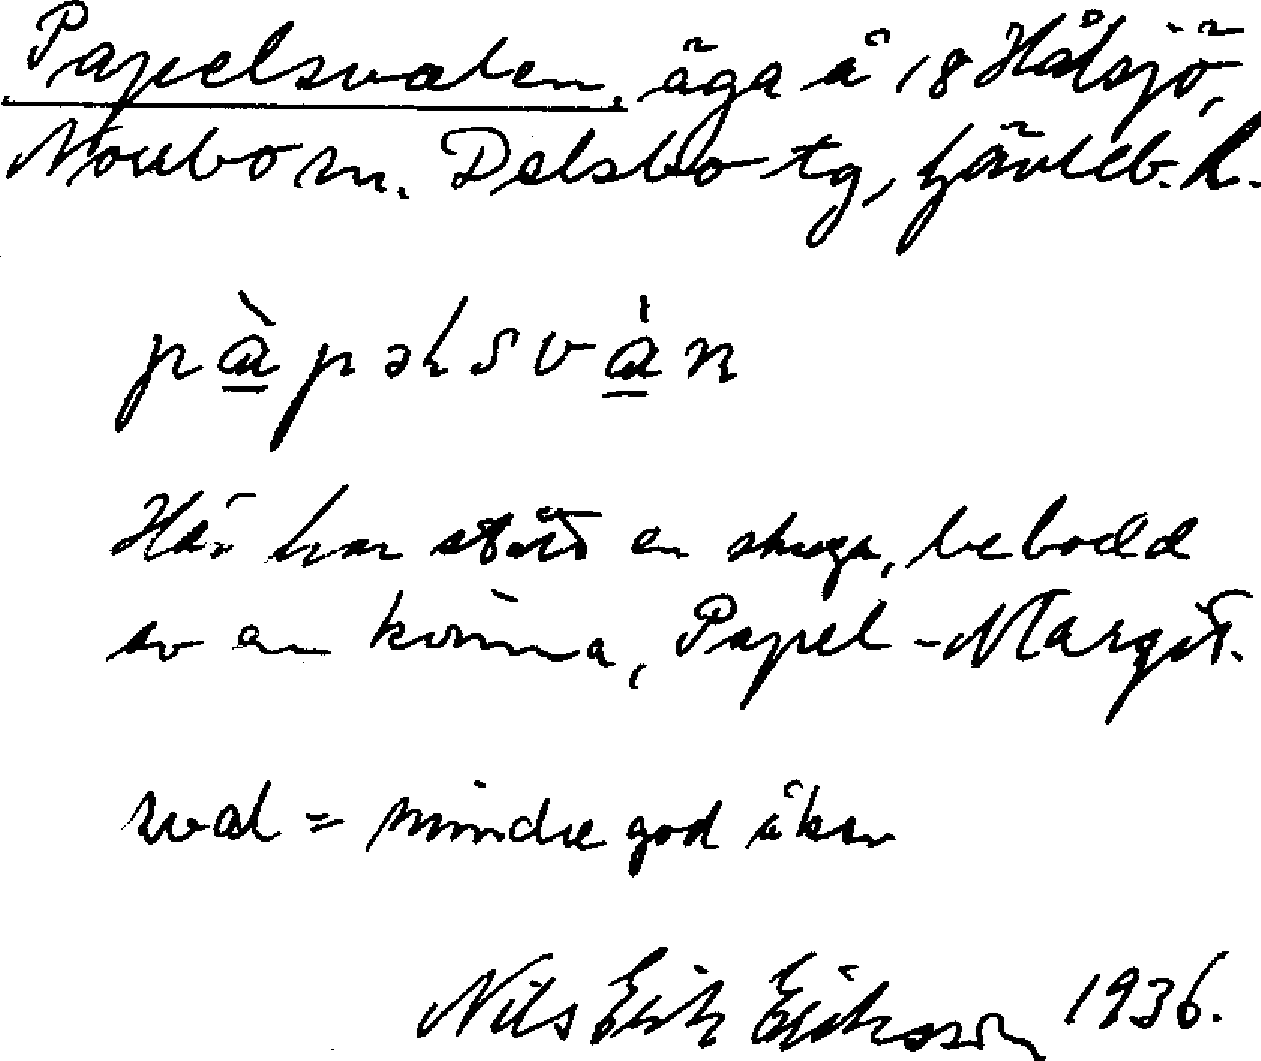 Papelsvalen, äga å 18 Hålsjö,
Norrbo sn. Delsbo tg, Gävleb. l.
pàpəlsván
Här har stått en stuga, bebodd
av en kvinna, Papel-Margit.
sval = mindre god åker
Nils Erik Eriksson 1936.